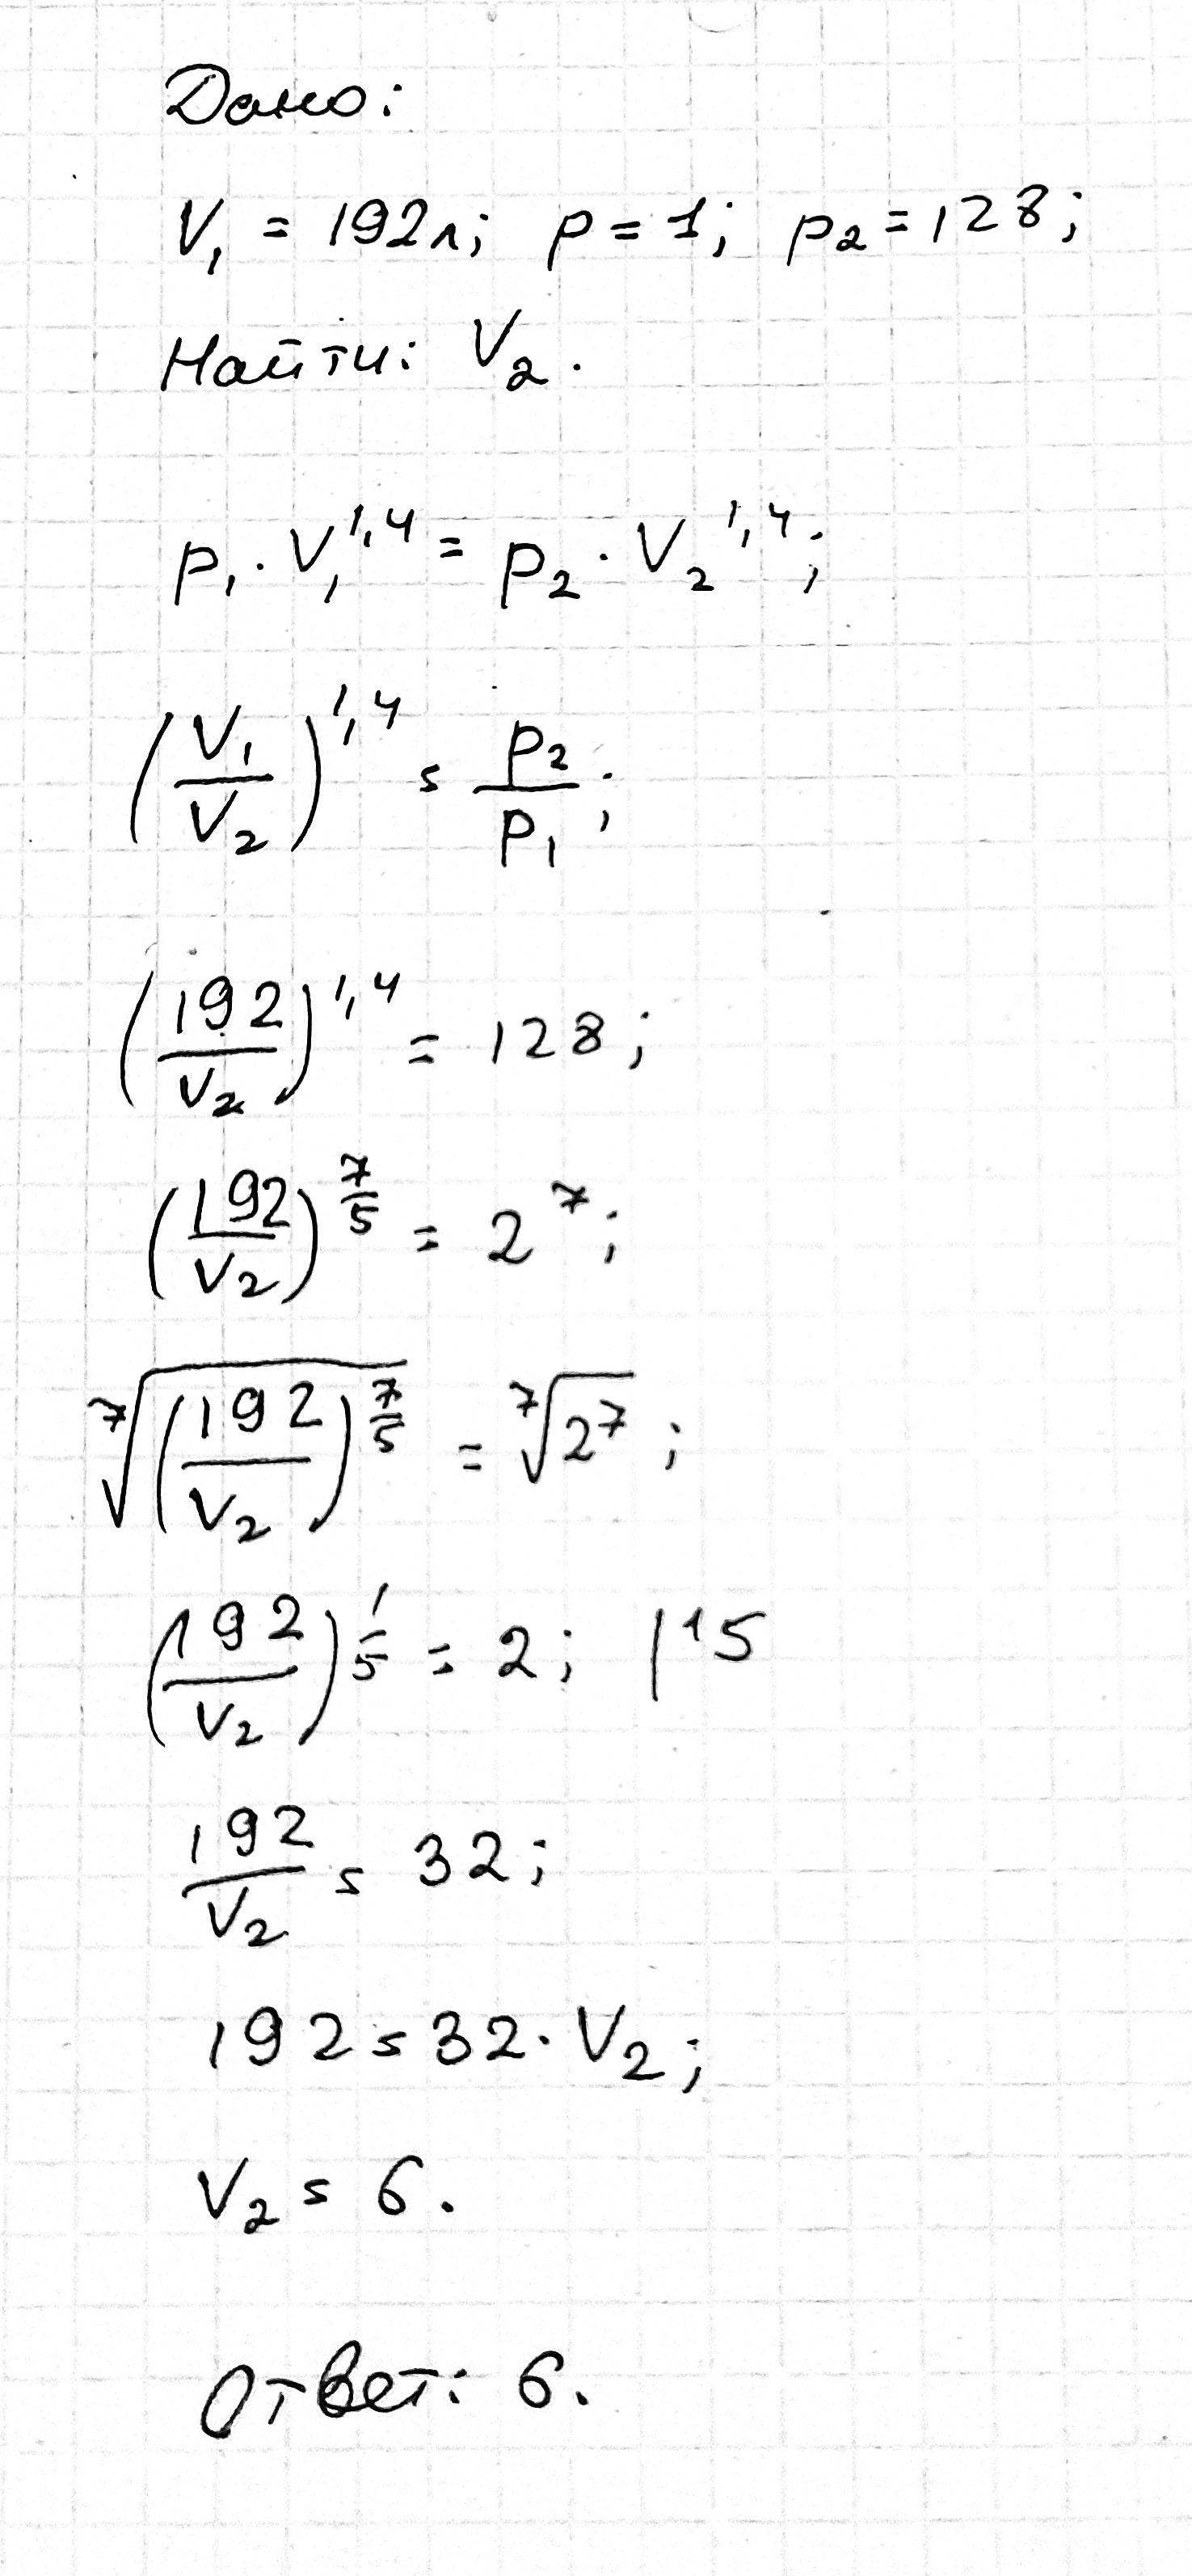 Дано:
V₁ = 192л; p = 1; p₂ = 128;
Найти: V₂.
p₁ · V₁^1,4 = p₂ · V₂^1,4;
(V₁/V₂)^1,4 = p₂/p₁;
(192/V₂)^1,4 = 128;
(192/V₂)^7/5 = 2^7;
⁷√((192/V₂)^7/5) = ⁷√(2^7);
(192/V₂)^1/5 = 2; |^5
192/V₂ = 32;
192 = 32 · V₂;
V₂ = 6.
Ответ: 6.